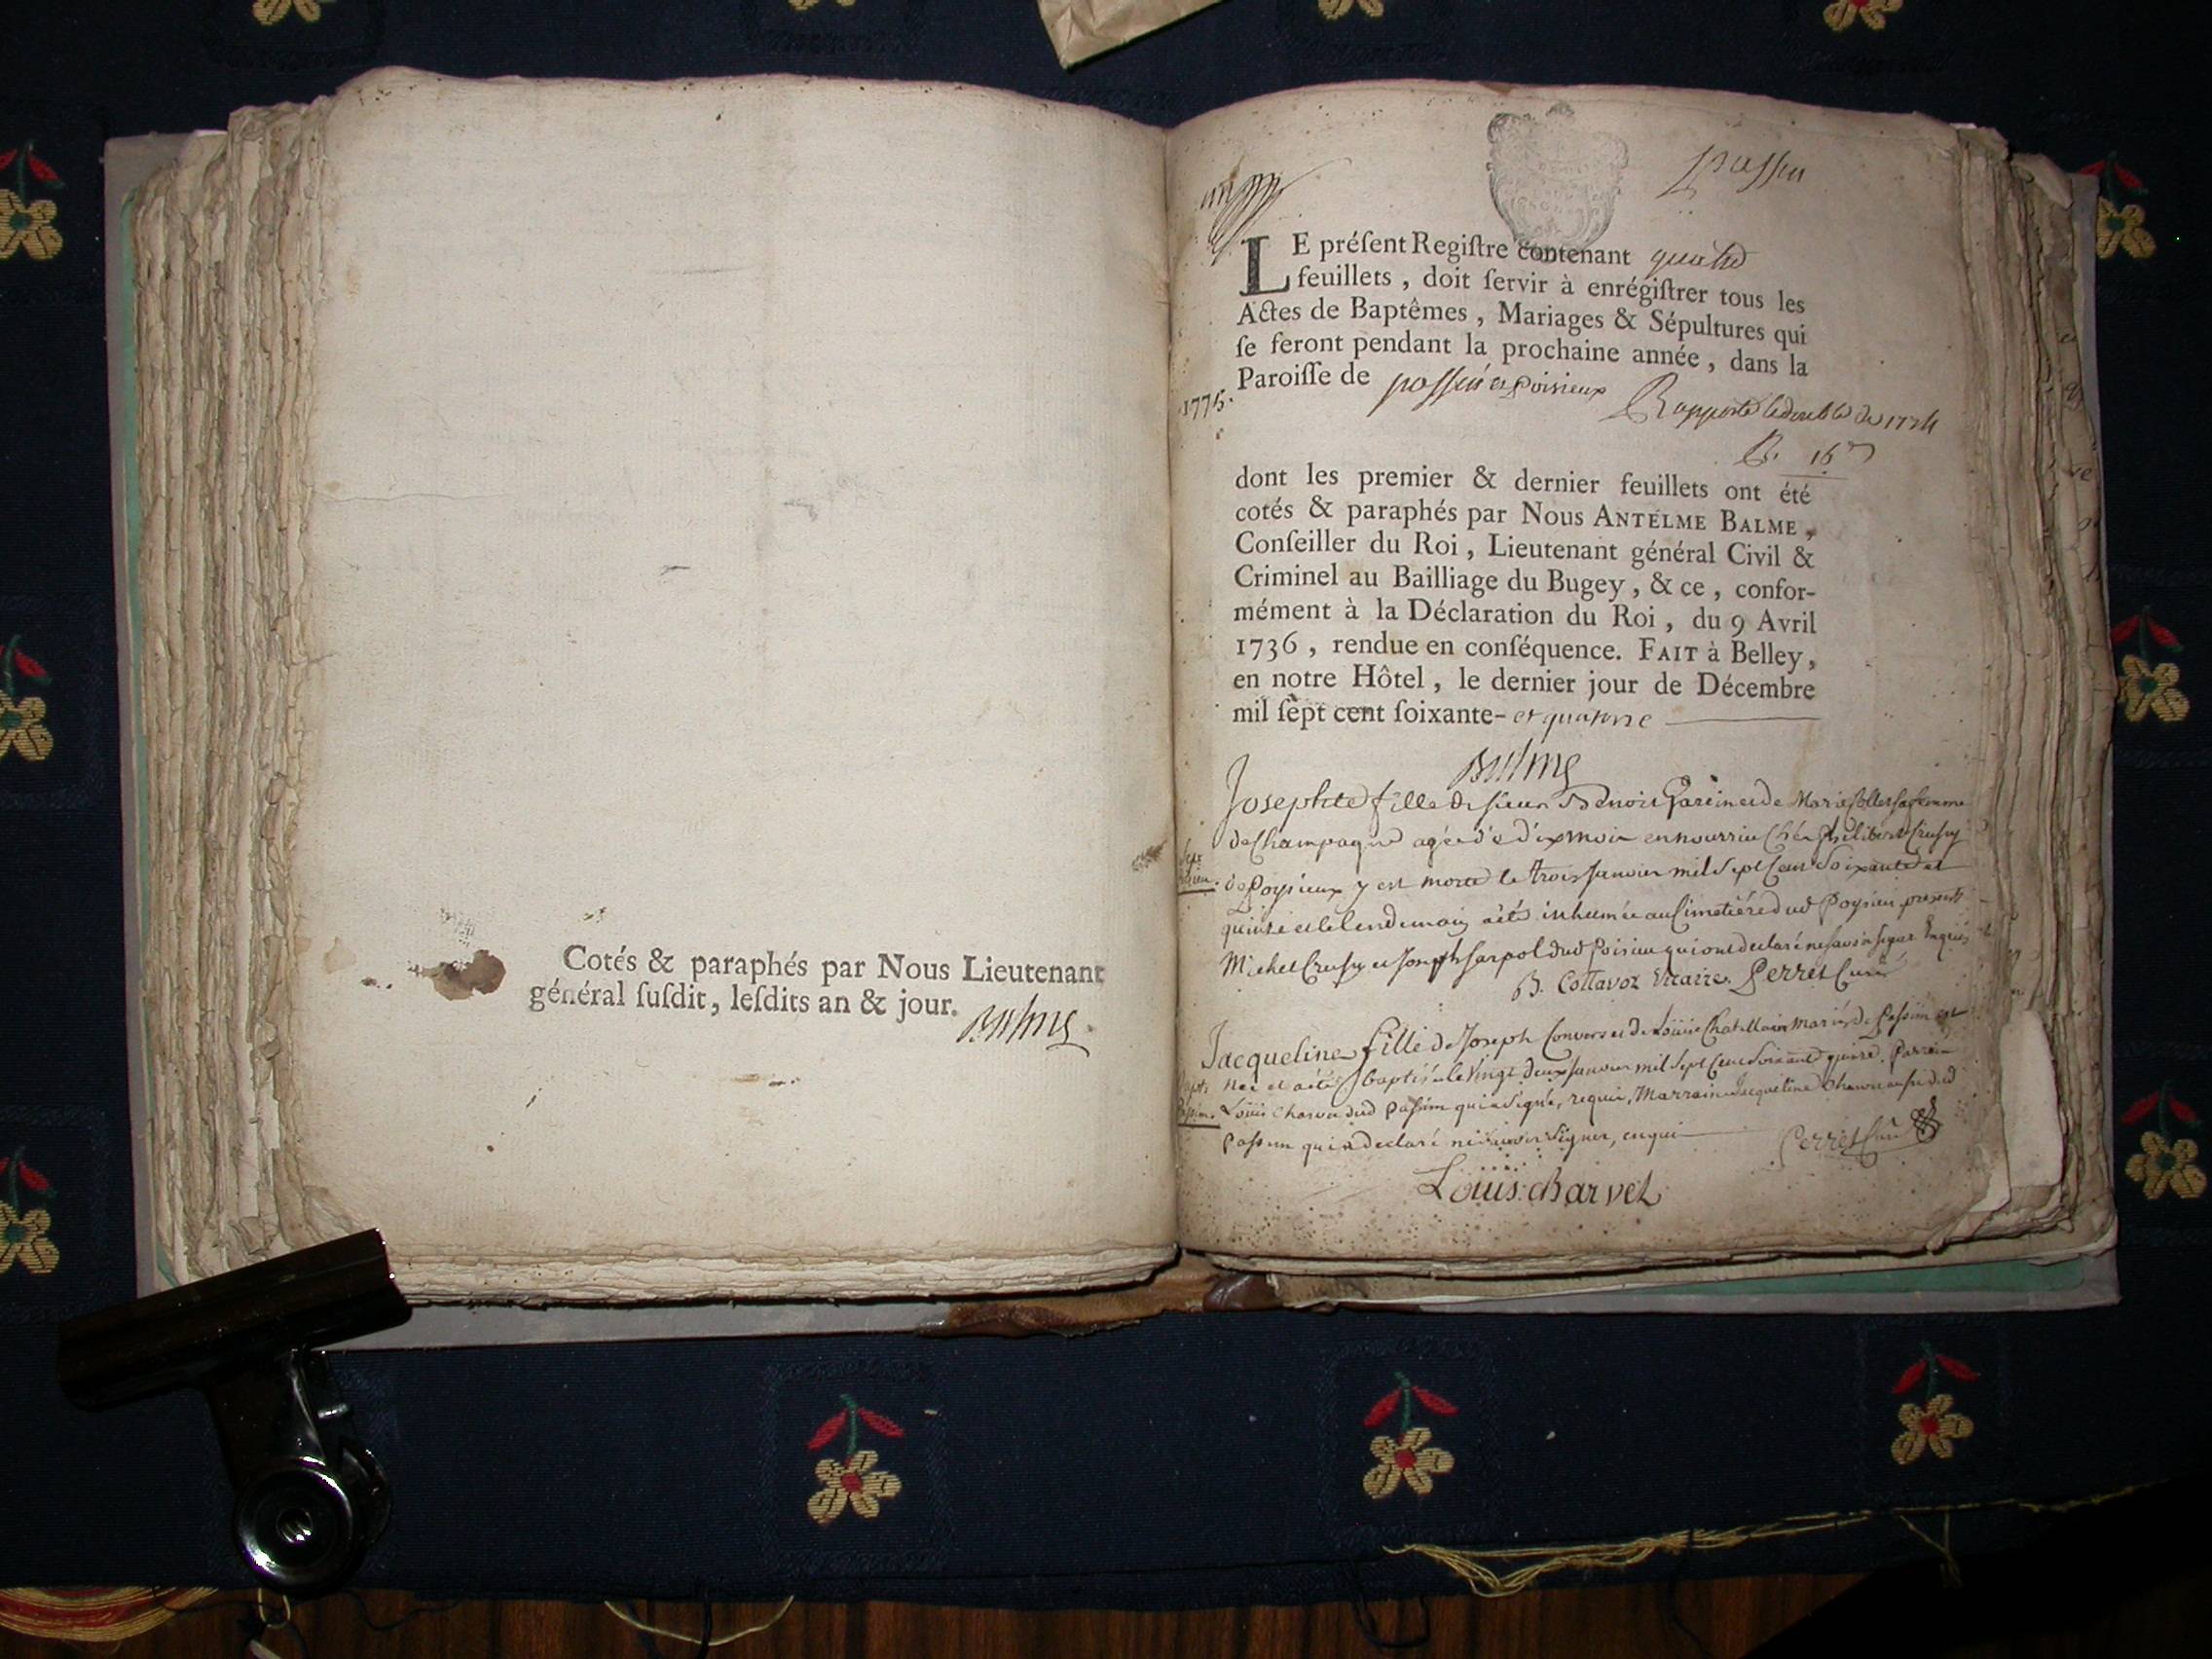 Cotés & paraphés par Nous Lieutenant
général ſuſdit, leſdits an & jour.
Balme
passin
LE préſent Regiſtre contenant quatre
feuillets, doit ſervir à enrégiſtrer tous les
Actes de Baptêmes, Mariages & Sépultures qui
ſe feront pendant la prochaine année, dans la
Paroiſſe de passin et poisieux
1775.
Rapporté le double de 1774
dont les premier & dernier feuillets ont été
cotés & paraphés par Nous ANTELME BALME,
Conſeiller du Roi, Lieutenant général Civil &
Criminel au Bailliage du Bugey, & ce, confor-
mément à la Déclaration du Roi, du 9 Avril
1736, rendue en conſéquence. FAIT à Belley,
en notre Hôtel, le dernier jour de Décembre
mil ſept cent ſoixante- et quatorze
Balme
Josephte fille de sieur Benoit Garin et de Marie sa femme
de Champagne agée de dix mois en nourrice chés Philibert Crussy
de Poysieux y est morte le trois janvier mil sept cent soixante et
quinze et le lendemain a été inhumée au Cimetiére dud Poysieu presents
Michel Crussy et Joseph Sarpol dud Poisieu qui ont declaré ne savoir signer Enquis
B. Collavoz Vicaire. Perret Curé
Jacqueline fille de Joseph Convers et de Louise Chatellain mariés de Passin est
née et a été baptisée le vingt deux janvier mil sept cent soixante quinze. Parrein
Louis Charvet dud Passin qui a signé, requis, Marraine Jacqueline dud
Passin qui a declaré ne savoir signer, enquise
Perret Curé
Louis charvet